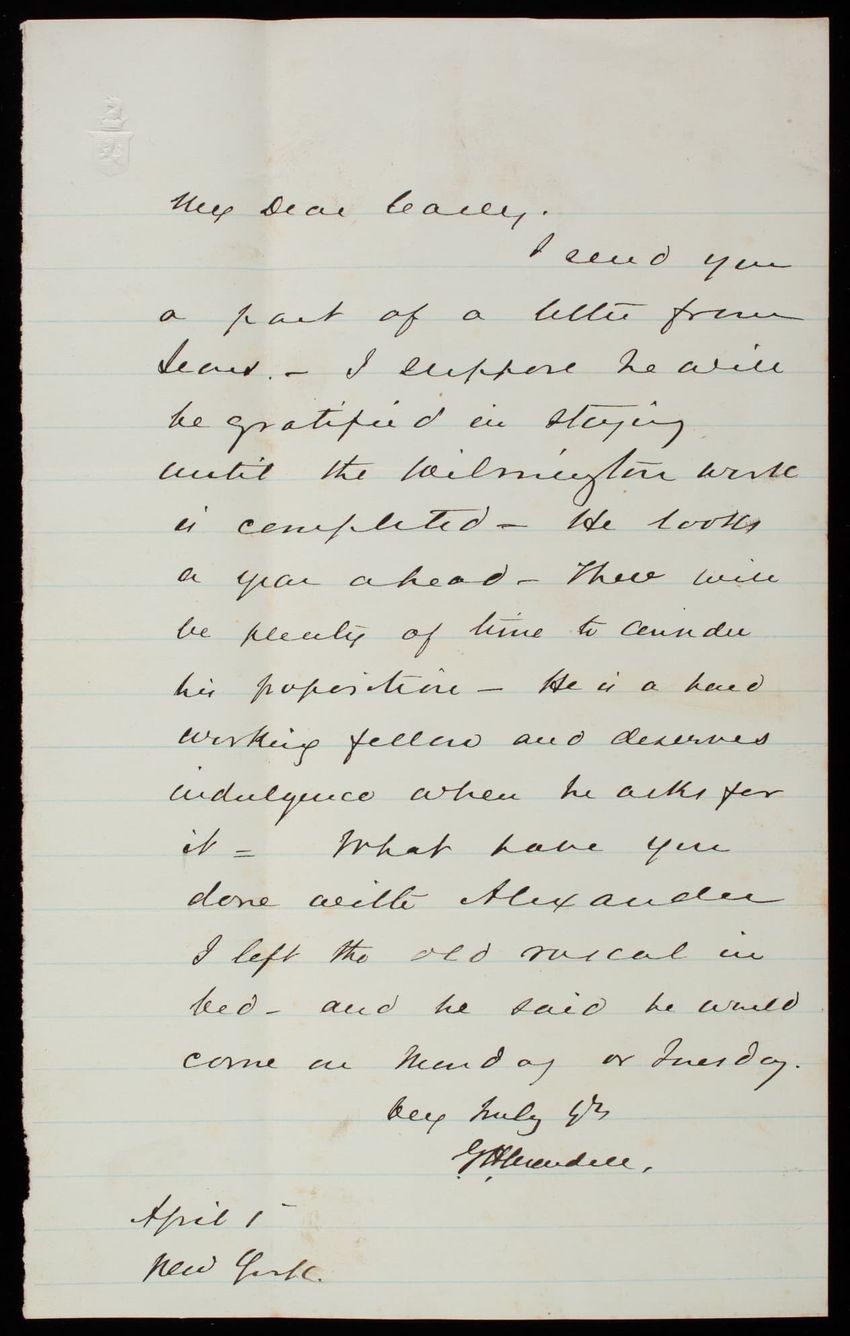 My Dear Casey.
I send you
a part of a letter from
Sears. - I suppose he will
be gratified in staying
until the Wilmington work
is completed - He looks
a year ahead - There will
be plenty of time to consider
his proposition - He is a hard
working fellow and deserves
indulgence when he asks for
it = What have you
done with Alexander
I left the old rascal in
bed - and he said he would
come on Monday or Tuesday.
Very Truly Yrs
G H Mendell.
April 1
New York.